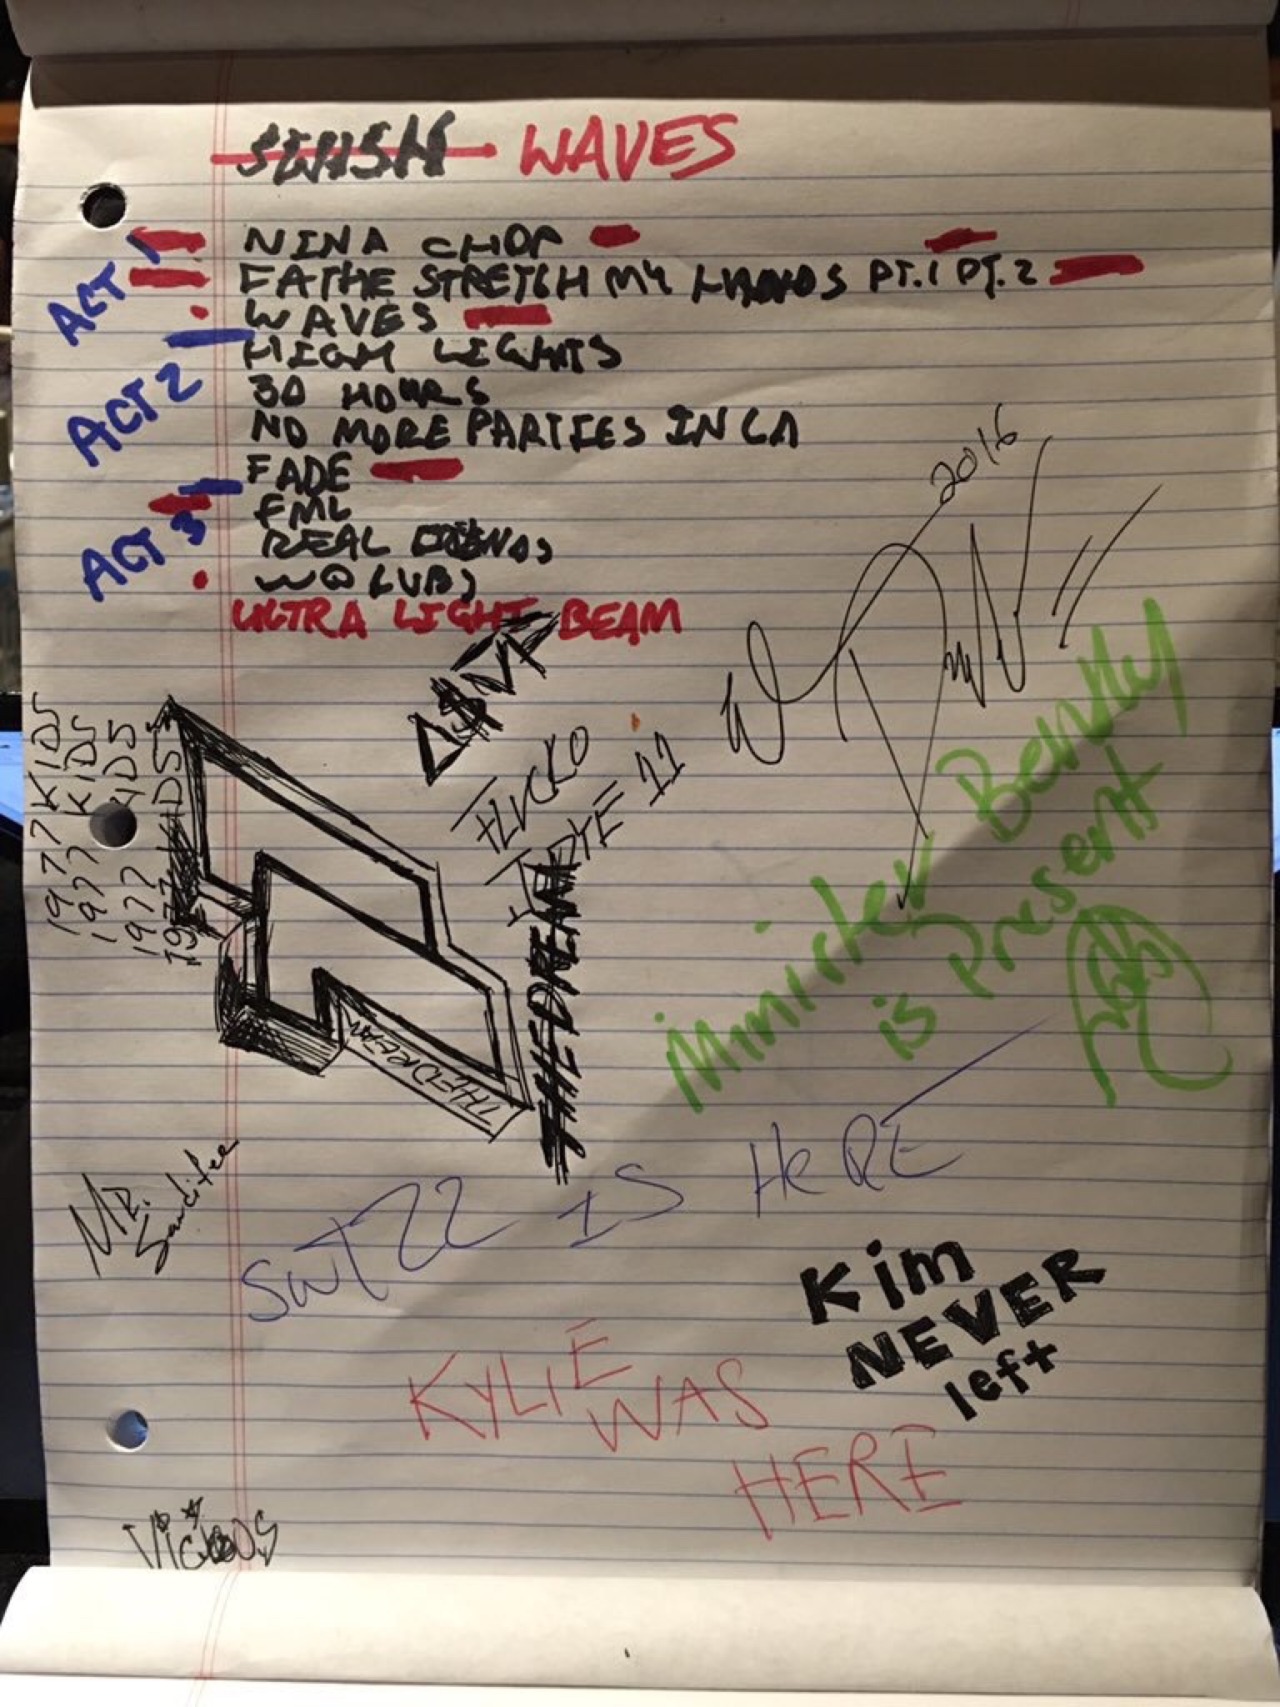 SWISH WAVES
ACT 1
NINA CHOP
FATHE STRETCH MY HANDS PT.1 PT.2
WAVES
ACT 2
HIGH LIGHTS
30 HOURS
NO MORE PARTIES IN LA
FADE
ACT 3
FML
REAL FRIENDS
WOLVES
ULTRA LIGHT BEAM
2016
A$AP
FLVCKO
JODYE 11
1977 KIDS
1977 KIDS
1977 KIDS
1977 KIDS
THEDREAM
THEDREAM
Minister Bently
is Present
MR.
SWIZZ IS HeRE
Kim
NEVER
left
KYLIE
WAS
HERE
VICIOUS